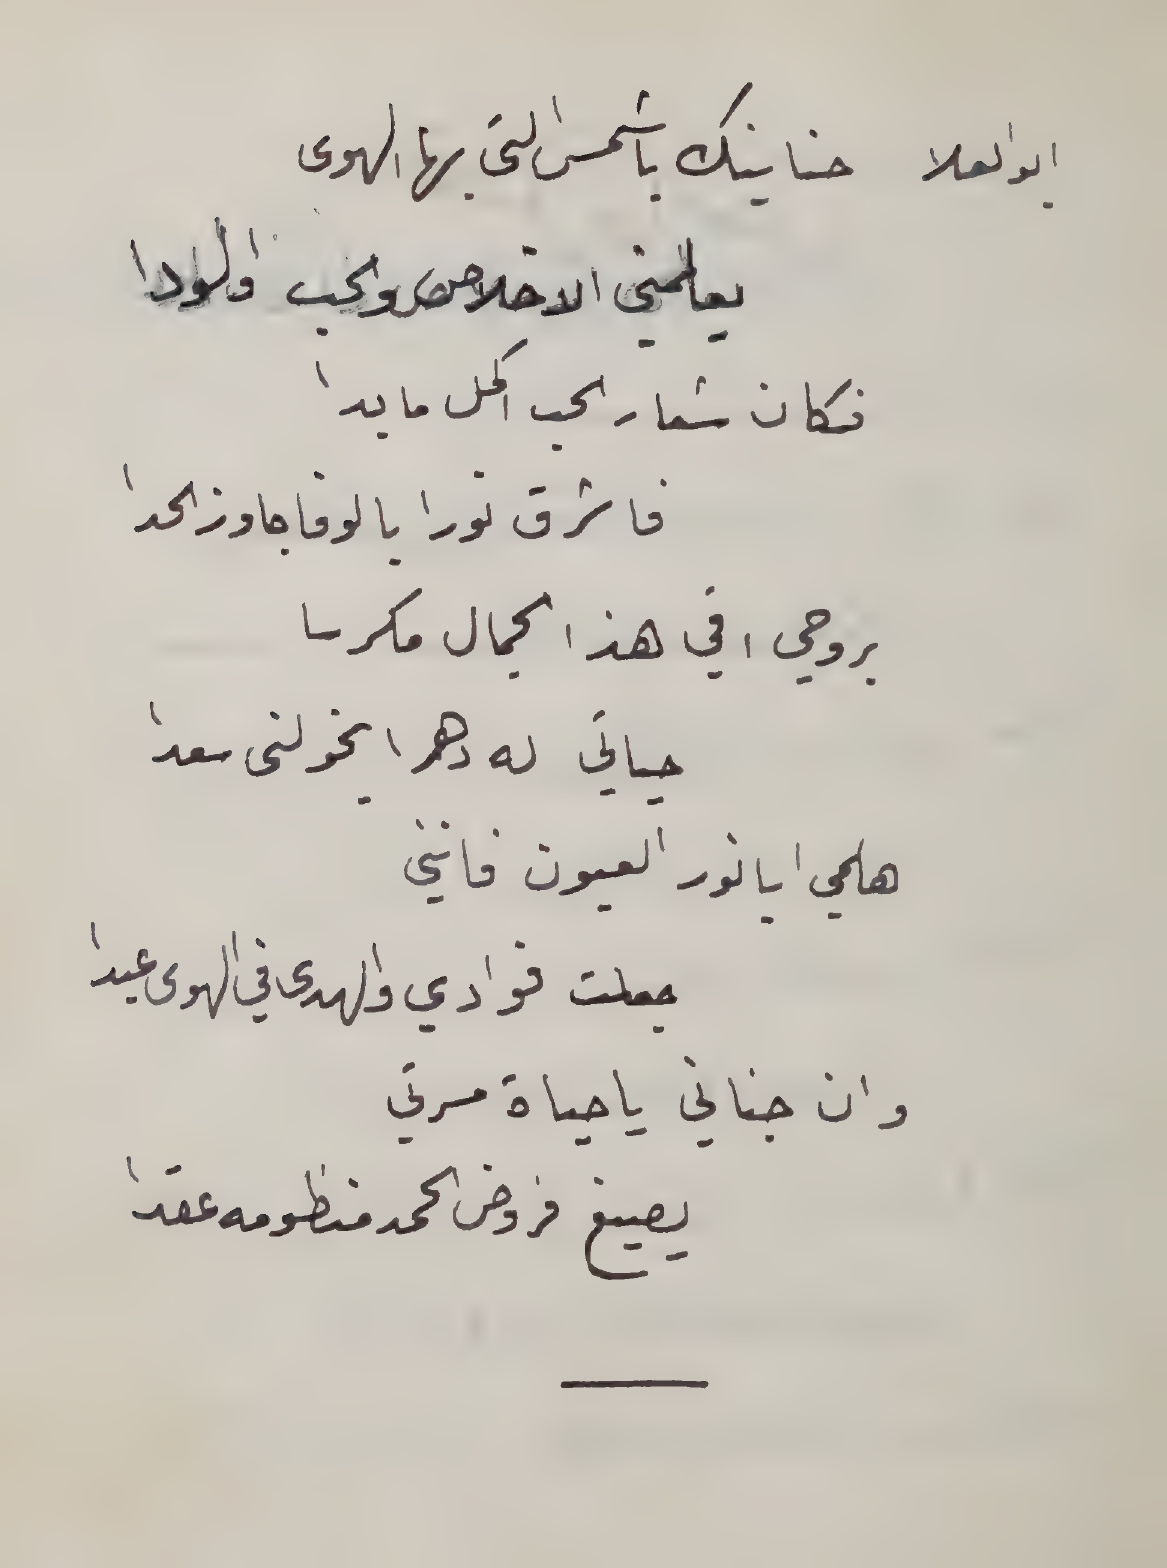 ابو العلا حنا ينك يا شمس التي بها الهوى
يعلمني الاخلاص والحب والودا
فكان شعار الحب اكمل ما بدا
فاشرق نورا بالوفا جاوز الحدا
بروحي افي هذا الجمال مكرسا
حياتي له دهرا يخولني سعدا
هلمي ايا نور العيون فانني
جعلت فوادي والهدى في الهوى عبدا
وان جناني يا حياة مسرتي
يصيغ فروض الحمد منظومه عقدا